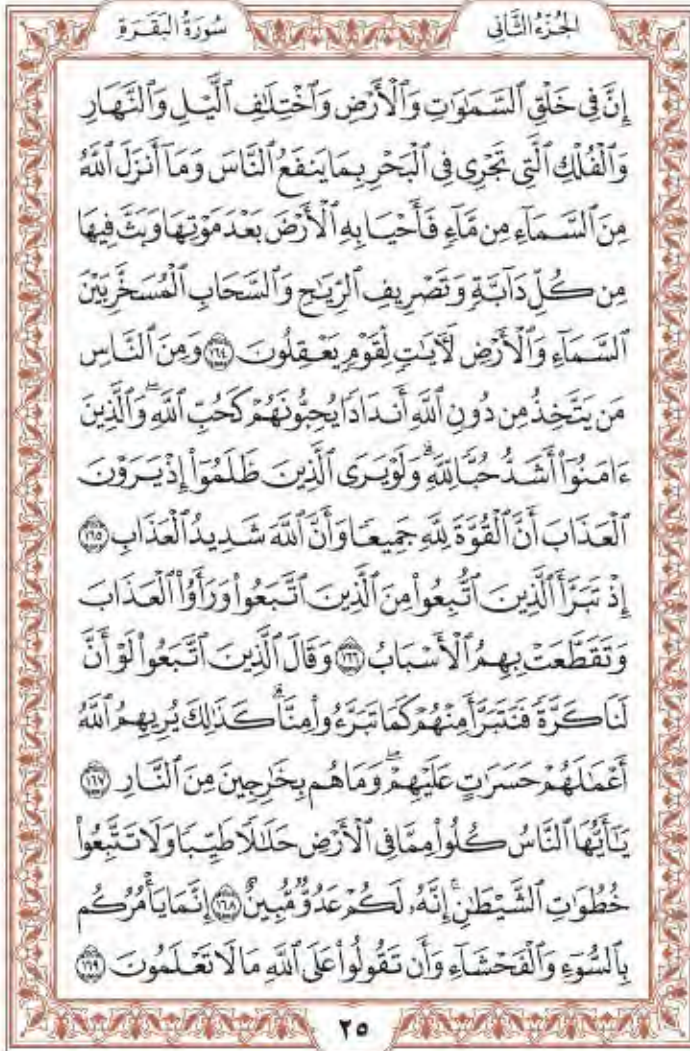 سُورَةُ البَقَرَةِ
الجُزْءُ الثَّانِي
إِنَّ فِي خَلْقِ ٱلسَّمَٰوَٰتِ وَٱلْأَرْضِ وَٱخْتِلَٰفِ ٱلَّيْلِ وَٱلنَّهَارِ
وَٱلْفُلْكِ ٱلَّتِي تَجْرِي فِي ٱلْبَحْرِ بِمَا يَنفَعُ ٱلنَّاسَ وَمَآ أَنزَلَ ٱللَّهُ
مِنَ ٱلسَّمَآءِ مِن مَّآءٍ فَأَحْيَا بِهِ ٱلْأَرْضَ بَعْدَ مَوْتِهَا وَبَثَّ فِيهَا
مِن كُلِّ دَآبَّةٍ وَتَصْرِيفِ ٱلرِّيَٰحِ وَٱلسَّحَابِ ٱلْمُسَخَّرِ بَيْنَ
ٱلسَّمَآءِ وَٱلْأَرْضِ لَأٓيَٰتٍ لِّقَوْمٍ يَعْقِلُونَ ١٦٤ وَمِنَ ٱلنَّاسِ
مَن يَتَّخِذُ مِن دُونِ ٱللَّهِ أَندَادًا يُحِبُّونَهُمْ كَحُبِّ ٱللَّهِۖ وَٱلَّذِينَ
ءَامَنُوٓا۟ أَشَدُّ حُبًّا لِّلَّهِۗ وَلَوْ يَرَى ٱلَّذِينَ ظَلَمُوٓا۟ إِذْ يَرَوْنَ
ٱلْعَذَابَ أَنَّ ٱلْقُوَّةَ لِلَّهِ جَمِيعًا وَأَنَّ ٱللَّهَ شَدِيدُ ٱلْعَذَابِ ١٦٥
إِذْ تَبَرَّأَ ٱلَّذِينَ ٱتُّبِعُوا۟ مِنَ ٱلَّذِينَ ٱتَّبَعُوا۟ وَرَأَوُا۟ ٱلْعَذَابَ
وَتَقَطَّعَتْ بِهِمُ ٱلْأَسْبَابُ ١٦٦ وَقَالَ ٱلَّذِينَ ٱتَّبَعُوا۟ لَوْ أَنَّ
لَنَا كَرَّةً فَنَتَبَرَّأَ مِنْهُمْ كَمَا تَبَرَّءُوا۟ مِنَّاۗ كَذَٰلِكَ يُرِيهِمُ ٱللَّهُ
أَعْمَٰلَهُمْ حَسَرَٰتٍ عَلَيْهِمْۖ وَمَا هُم بِخَٰرِجِينَ مِنَ ٱلنَّارِ ١٦٧
يَٰٓأَيُّهَا ٱلنَّاسُ كُلُوا۟ مِمَّا فِي ٱلْأَرْضِ حَلَٰلًا طَيِّبًا وَلَا تَتَّبِعُوا۟
خُطُوَٰتِ ٱلشَّيْطَٰنِۚ إِنَّهُۥ لَكُمْ عَدُوٌّ مُّبِينٌ ١٦٨ إِنَّمَا يَأْمُرُكُم
بِٱلسُّوٓءِ وَٱلْفَحْشَآءِ وَأَن تَقُولُوا۟ عَلَى ٱللَّهِ مَا لَا تَعْلَمُونَ ١٦٩
٢٥